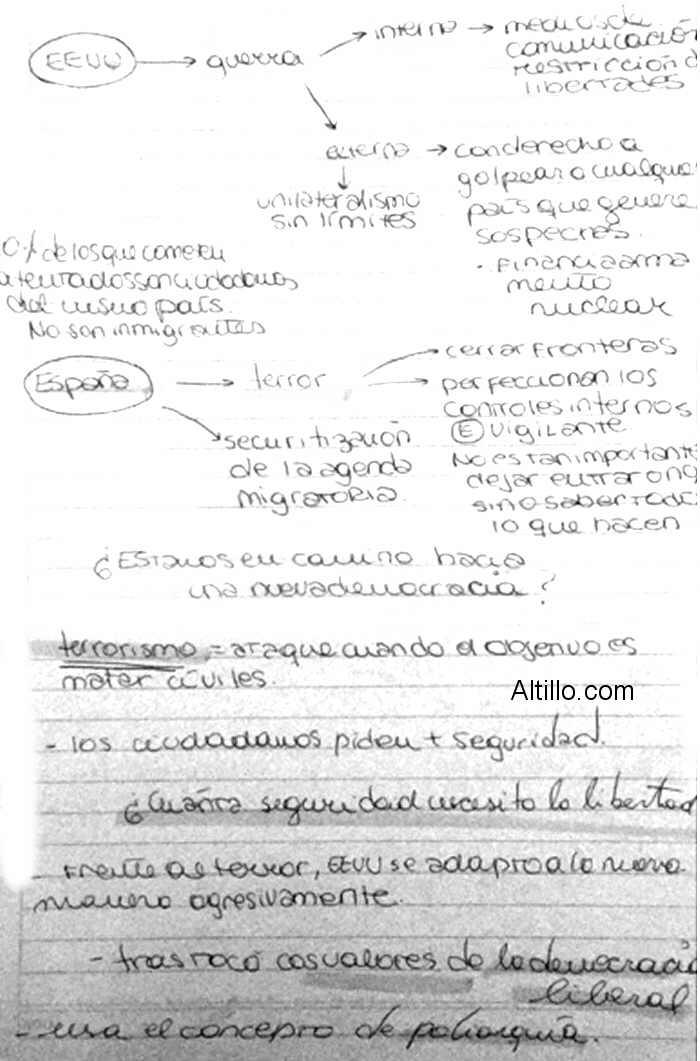 EEUU → guerra → interno → medios de
comunicación
restricción d
libertades
externo → con derecho a
golpear a cualquie
país que genere
sospechas.
· Financia arma
mento
nuclear
↓
unilateralismo
sin límites
0% de los que cometen
atentados son ciudadanos
del mismo país.
No son inmigrantes
España → terror → cerrar fronteras
→ perfeccionan los
controles internos
E vigilante.
No es tan importante
dejar entrar o no
sino saber todo
lo que hacen
→ securitización
de la agenda
migratoria
¿Estamos en camino hacia
una nueva democracia?
terrorismo = ataque cuando el objetivo es
matar civiles.
Altillo.com
- los ciudadanos piden + seguridad.
¿Cuánta seguridad necesita la libertad
- Frente al terror, EEUU se adaptó a la nueva
manera agresivamente.
- trastocó los valores de la democracia
liberal
- usa el concepto de poliarquía.